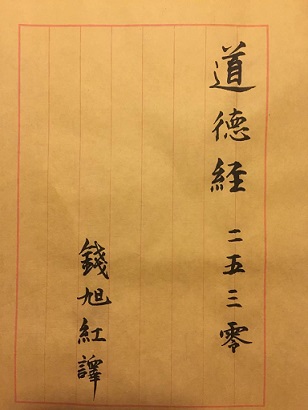 道德經 二五三零
錢旭紅譯